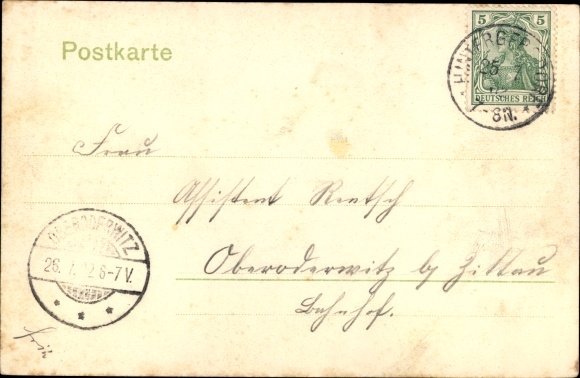 Postkarte
5 5
DEUTSCHES REICH
25
7-8N.
Frau
Assistent Rentsch
OBERODERWITZ
26. 7. 02 6-7 V.
* * *
Oberoderwitz b/ Zittau
Bahnhof.